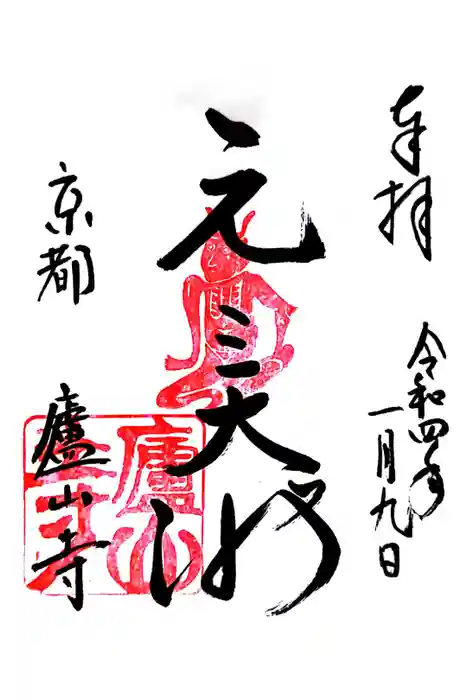 奉拝
令和四年
一月九日
元三大師
廬山
京都
廬山寺